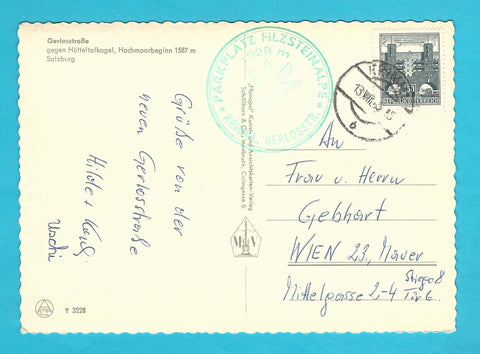 Gerlosstraße
gegen Hütteltalkogel, Hochmoorbeginn 1587 m
Salzburg
Grüße von der
neuen Gerlosstraße
Hilde +
Uschi
"Monopol" Kunst- und Ansichtskarten-Verlag
Schöllhorn & Co., Innsbruck, Colingasse 6
PARKPLATZ FILZSTEINALPE
1628 m
GERLOSSTR.
REPUBLIK ÖSTERREICH
An
Frau u. Herrn
Gebhart
WIEN 23., Mauer
Mittelgasse 2-4 Stiege 8
Tür 6
Y 3228